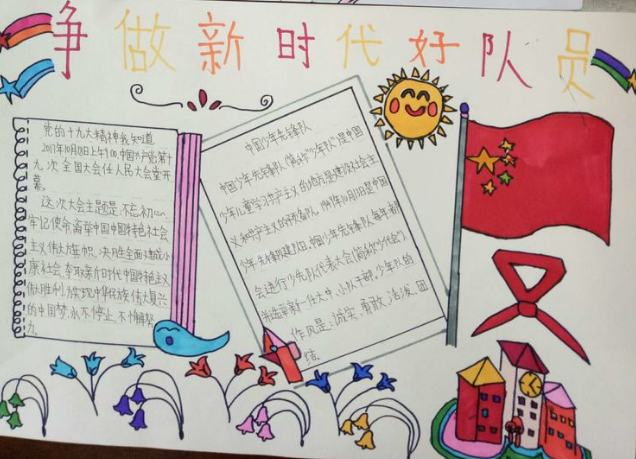 争做新时代好队员
党的十九大精神我知道
2017年10月18日上午9:00,中国共产党第十
九次全国大会在人民大会堂开
幕。
这次大会主题是:不忘初心,
牢记使命,高举中国特色社会
主义伟大旗帜,决胜全面建成小
康社会,夺取新时代中国特色主义
伟大胜利,为实现中华民族伟大复兴
的中国梦,永不停止、不懈努
力。
中国少年先锋队
中国少年先锋队(简称"少年队")是中国
少年儿童学习共产主义的地方,是建设社会主
义和共产主义的预备队。1949年10月13日是中国
少年先锋队建队日。中国少年先锋队每年都
会进行少先队代表大会(简称少代会)
并选举新一任大中、小队干部,少年队的
作风是:诚实、勇敢、活泼、团
结。